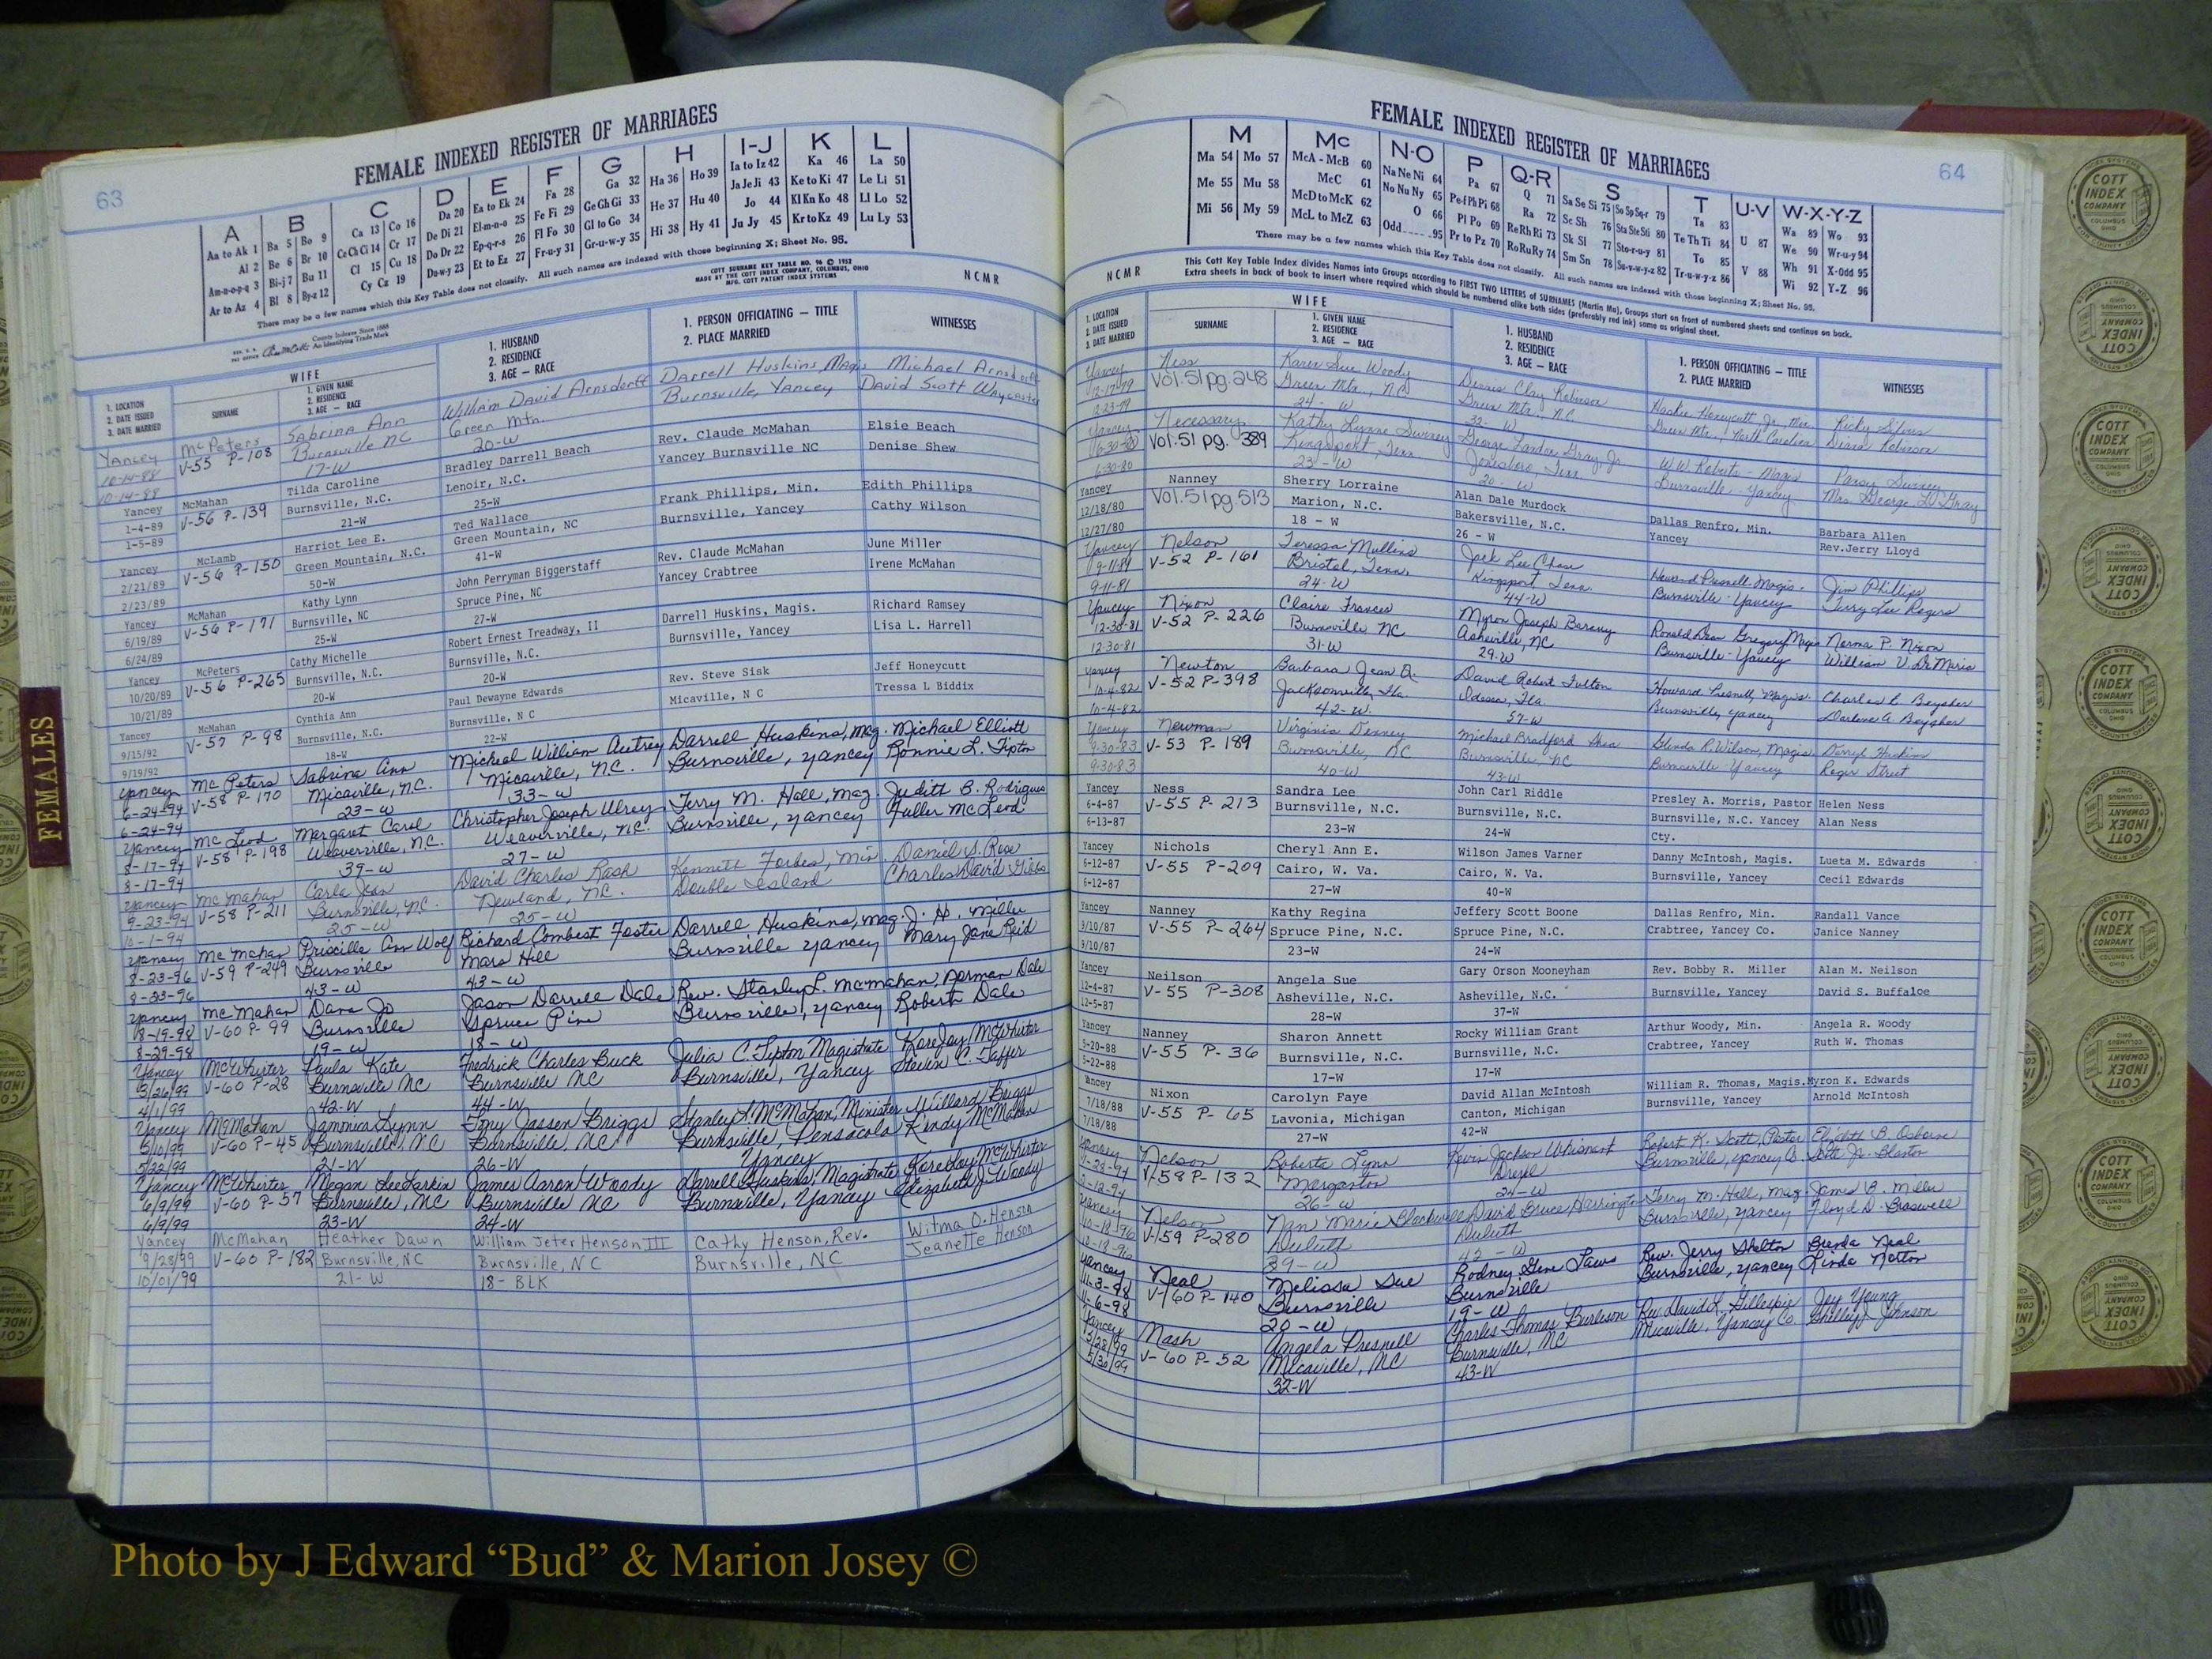 63
FEMALE INDEXED REGISTER OF MARRIAGES
A B C D E F G H I-J K L
Aa to Ak 1 Ba 5 Bo 9 Ca 13 Co 16 Da 20 Ea to Ek 24 Fa 28 Ga 32 Ha 36 Ho 39 Ia to Iz 42 Ka 46 La 50
Al 2 Be 6 Br 10 Ce Ch Ci 14 Cr 17 De Di 21 El-m-n-o 25 Fe Fi 29 Ge Gh Gi 33 He 37 Hu 40 Ja Je Ji 43 Ke to Ki 47 Le Li 51
Am-n-o-p-q 3 Bi-j 7 Bu 11 Cl 15 Cu 18 Do Dr 22 Ep-q-r-s 26 Fl Fo 30 Gl to Go 34 Jo 44 Kl Kn Ko 48 Ll Lo 52
Ar to Az 4 Bl 8 By-z 12 Cy Cz 19 Du-w-y 23 Et to Ez 27 Fr-u-y 31 Gr-u-w-y 35 Hi 38 Hy 41 Ju Jy 45 Kr to Kz 49 Lu Ly 53
There may be a few names which this Key Table does not classify. All such names are indexed with those beginning X; Sheet No. 95.
COTT SURNAME KEY TABLE NO. 96 © 1952
MADE BY THE COTT INDEX COMPANY, COLUMBUS, OHIO
MFG. COTT PATENT INDEX SYSTEMS
NCMR
County Indexes Since 1888
An Identifying Trade Mark
WIFE
1. LOCATION 2. DATE ISSUED 3. DATE MARRIED
SURNAME
1. GIVEN NAME 2. RESIDENCE 3. AGE — RACE
1. HUSBAND 2. RESIDENCE 3. AGE — RACE
1. PERSON OFFICIATING — TITLE 2. PLACE MARRIED
WITNESSES
Yancey McPeters Sabrina Ann William David Arnsdorff Darrell Huskins, Magis Michael Arnsdorff
10-14-88 V-55 P-108 Burnsville NC Green Mtn. Burnsville, Yancey David Scott Waycaster
10-14-88 17-W 20-W
Yancey McMahan Tilda Caroline Bradley Darrell Beach Rev. Claude McMahan Elsie Beach
1-4-89 V-56 P-139 Burnsville, N.C. Lenoir, N.C. Yancey Burnsville NC Denise Shew
1-5-89 21-W 25-W
Yancey McLamb Harriot Lee E. Ted Wallace Frank Phillips, Min. Edith Phillips
2/21/89 V-56 P-150 Green Mountain, N.C. Green Mountain, NC Burnsville, Yancey Cathy Wilson
2/23/89 50-W 41-W
Yancey McMahan Kathy Lynn John Perryman Biggerstaff Rev. Claude McMahan June Miller
6/19/89 V-56 P-171 Burnsville, NC Spruce Pine, NC Yancey Crabtree Irene McMahan
6/24/89 25-W 27-W
Yancey McPeters Cathy Michelle Robert Ernest Treadway, II Darrell Huskins, Magis. Richard Ramsey
10/20/89 V-56 P-265 Burnsville, N.C. Burnsville, N.C. Burnsville, Yancey Lisa L. Harrell
10/21/89 20-W 20-W
Yancey McMahan Cynthia Ann Paul Dewayne Edwards Rev. Steve Sisk Jeff Honeycutt
9/15/92 V-57 P-98 Burnsville, N.C. Burnsville, N C Micaville, N C Tressa L Biddix
9/19/92 18-W 22-W
Yancey McPeters Sabrina Ann Micheal William Autrey Darrell Huskins, Mag. Michael Elliott
6-24-94 V-58 P-170 Micaville, N.C. Micaville, N.C. Burnsville, Yancey Ronnie L. Tipton
6-24-94 23-W 33-W
Yancey McLeod Margaret Carol Christopher Joseph Ulrey Terry M. Hall, Mag. Judith B. Rodrigues
8-17-94 V-58 P-198 Weaverville, N.C. Weaverville, N.C. Burnsville, Yancey Fuller McLeod
8-17-94 39-W 27-W
Yancey McMahan Carla Jean David Charles Rash Kenneth Forbes, Min Daniel S. Rose
9-23-94 V-58 P-211 Burnsville, N.C. Newland, N.C. Double Island Charles David Gibbs
10-1-94 25-W 25-W
Yancey McMahan Priscilla Ann Wolf Richard Combest Foster Darrell Huskins, Mag. J. H. Miller
8-23-96 V-59 P-249 Burnsville Mars Hill Burnsville Yancey Mary Jane Reid
8-23-96 43-W 43-W
Yancey McMahan Dana Jo Jason Darrell Dale Rev. Stanley L. McMahan, Norman Dale
8-19-98 V-60 P-99 Burnsville Spruce Pine Burnsville, Yancey Robert Dale
8-29-98 19-W 18-W
Yancey McWhirter Paula Kate Fredrick Charles Buck Julia C. Tipton Magistrate KoreJoy McWhirter
3/26/99 V-60 P-28 Burnsville NC Burnsville NC Burnsville, Yancey Steven C. Taffer
4/1/99 42-W 44-W
Yancey McMahan Jamonica Lynn Tony Jassen Briggs Stanley L. McMahan, Minister Millard Briggs
5/10/99 V-60 P-45 Burnsville, NC Burnsville, NC Burnsville, Pensacola Kindy McMahan
5/22/99 21-W 26-W Yancey
Yancey McWhirter Megan Lee Larkin James Aaron Woody Darrell Huskins, Magistrate KoreeJoy McWhirter
6/9/99 V-60 P-57 Burnsville, NC Burnsville NC Burnsville, Yancey Elizabeth J. Woody
6/9/99 23-W 24-W
Yancey McMahan Heather Dawn William Jeter Henson III Cathy Henson, Rev. Witma O. Henson
9/28/99 V-60 P-182 Burnsville, NC Burnsville, NC Burnsville, NC Jeanette Henson
10/01/99 21-W 18-BLK
FEMALES
64
FEMALE INDEXED REGISTER OF MARRIAGES
M Mc N-O P Q-R S T U-V W-X-Y-Z
Ma 54 Mo 57 McA - McB 60 Na Ne Ni 64 Pa 67 Q 71 Sa Se Si 75 So Sp Sq-r 79 Ta 83 U 87 Wa 89 Wo 93
Me 55 Mu 58 McC 61 No Nu Ny 65 Pe-f Ph Pi 68 Ra 72 Sc Sh 76 Sta Ste Sti 80 Te Th Ti 84 We 90 Wr-u-y 94
Mi 56 My 59 McD to McK 62 O 66 Pl Po 69 Re Rh Ri 73 Sk Sl 77 Sto-r-u-y 81 To 85 V 88 Wh 91 X-Odd 95
McL to McZ 63 Odd 95 Pr to Pz 70 Ro Ru Ry 74 Sm Sn 78 Su-v-w-y-z 82 Tr-u-w-y-z 86 Wi 92 Y-Z 96
There may be a few names which this Key Table does not classify. All such names are indexed with those beginning X; Sheet No. 95.
NCMR
This Cott Key Table Index divides Names into Groups according to FIRST TWO LETTERS of SURNAMES (Martin Ma), Groups start on front of numbered sheets and continue on back.
Extra sheets in back of book to insert where required which should be numbered alike both sides (preferably red ink) same as original sheet.
WIFE
1. LOCATION 2. DATE ISSUED 3. DATE MARRIED
SURNAME
1. GIVEN NAME 2. RESIDENCE 3. AGE — RACE
1. HUSBAND 2. RESIDENCE 3. AGE — RACE
1. PERSON OFFICIATING — TITLE 2. PLACE MARRIED
WITNESSES
Yancey Ness Karen Sue Woody Dennis Clay Robinson Haskie Honeycutt Jr., Min. Ricky Silver
12-17-79 Vol. 51 pg. 248 Green Mtn., NC Green Mtn., NC Green Mtn., North Carolina Diana Robinson
24-W 32-W
Yancey Necessary Kathy Lynne Surney George Landon Gray, Jr. W.W. Roberts - Magis Pansy Surney
6-30-80 Vol. 51 pg. 389 Kingsport, Tenn Jonesboro, Tenn. Burnsville - Yancey Mrs. George L. Gray
6-30-80 23-W 20-W
Yancey Nanney Sherry Lorraine Alan Dale Murdock Dallas Renfro, Min. Barbara Allen
12/18/80 Vol. 51 pg. 513 Marion, N.C. Bakersville, N.C. Yancey Rev. Jerry Lloyd
12/27/80 18 - W 26 - W
Yancey Nelson Teressa Mullins Jack Lee Chase Howard Presnell-Magis. Jim Phillips
9-11-81 V-52 P-161 Bristol, Tenn. Kingsport Tenn. Burnsville-Yancey Terry Lee Rogers
9-11-81 24-W 44-W
Yancey Nixon Claire Frances Myron Joseph Barany Ronald Dean Gregory Magis Norma P. Nixon
12-30-81 V-52 P-226 Burnsville NC Asheville, NC Burnsville-Yancey William V. DeMaria
12-30-81 31-W 29-W
Yancey Newton Barbara Jean A. David Robert Fulton Howard Presnell, Magis. Charles E. Beysher
10-4-82 V-52 P-398 Jacksonville, Fla. Odessa, Fla. Burnsville, Yancey Darlene A. Beysher
10-4-82 42-W 57-W
Yancey Newman Virginia Denney Michael Bradford Shea Glenda R. Wilson, Magis. Darryl Huskins
9-30-83 V-53 P-189 Burnsville, NC Burnsville, NC Burnsville Yancey Roger Street
9-30-83 40-W 43-W
Yancey Ness Sandra Lee John Carl Riddle Presley A. Morris, Pastor Helen Ness
6-4-87 V-55 P-213 Burnsville, N.C. Burnsville, N.C. Burnsville, N.C. Yancey Alan Ness
6-13-87 23-W 24-W Cty.
Yancey Nichols Cheryl Ann E. Wilson James Varner Danny McIntosh, Magis. Lueta M. Edwards
6-12-87 V-55 P-209 Cairo, W. Va. Cairo, W. Va. Burnsville, Yancey Cecil Edwards
6-12-87 27-W 40-W
Yancey Nanney Kathy Regina Jeffery Scott Boone Dallas Renfro, Min. Randall Vance
9/10/87 V-55 P-264 Spruce Pine, N.C. Spruce Pine, N.C. Crabtree, Yancey Co. Janice Nanney
9/10/87 23-W 24-W
Yancey Neilson Angela Sue Gary Orson Mooneyham Rev. Bobby R. Miller Alan M. Neilson
12-4-87 V-55 P-308 Asheville, N.C. Asheville, N.C. Burnsville, Yancey David S. Buffaloe
12-5-87 28-W 37-W
Yancey Nanney Sharon Annett Rocky William Grant Arthur Woody, Min. Angela R. Woody
5-20-88 V-55 P-36 Burnsville, N.C. Burnsville, N.C. Crabtree, Yancey Ruth W. Thomas
5-22-88 17-W 17-W
Yancey Nixon Carolyn Faye David Allan McIntosh William R. Thomas, Magis. Myron K. Edwards
7/18/88 V-55 P-65 Lavonia, Michigan Canton, Michigan Burnsville, Yancey Arnold McIntosh
7/18/88 27-W 42-W
Yancey Nelson Roberta Lynn Kevin Jackson Whisnant Robert K. Scott, Pastor Elizabeth B. Osborne
V-58 P-132 Morganton Drexel Burnsville, Yancey Co.
26-W 24-W
Yancey Nelson Nan Marie Blackwell David Bruce Harrington Terry M. Hall, Mag. James B. Miller
10-18-96 V-59 P-280 Duluth Duluth Burnsville, Yancey Floyd D. Braswell
10-18-96 39-W 42-W
Yancey Neal Melissa Sue Rodney Gene Laws Rev. Jerry Shelton Brenda Neal
11-3-98 V-60 P-140 Burnsville Burnsville Burnsville, Yancey Linda Norton
11-6-98 20-W 19-W
Yancey Nash Angela Presnell Charles Thomas Burleson Rev. David L. Gillespie Joy Young
5/28/99 V-60 P-52 Micaville, NC Burnsville, NC Micaville, Yancey Co. Shelley J. Johnson
5/30/99 32-W 43-W
COTT INDEX COMPANY COLUMBUS OHIO
Photo by J Edward “Bud” & Marion Josey ©